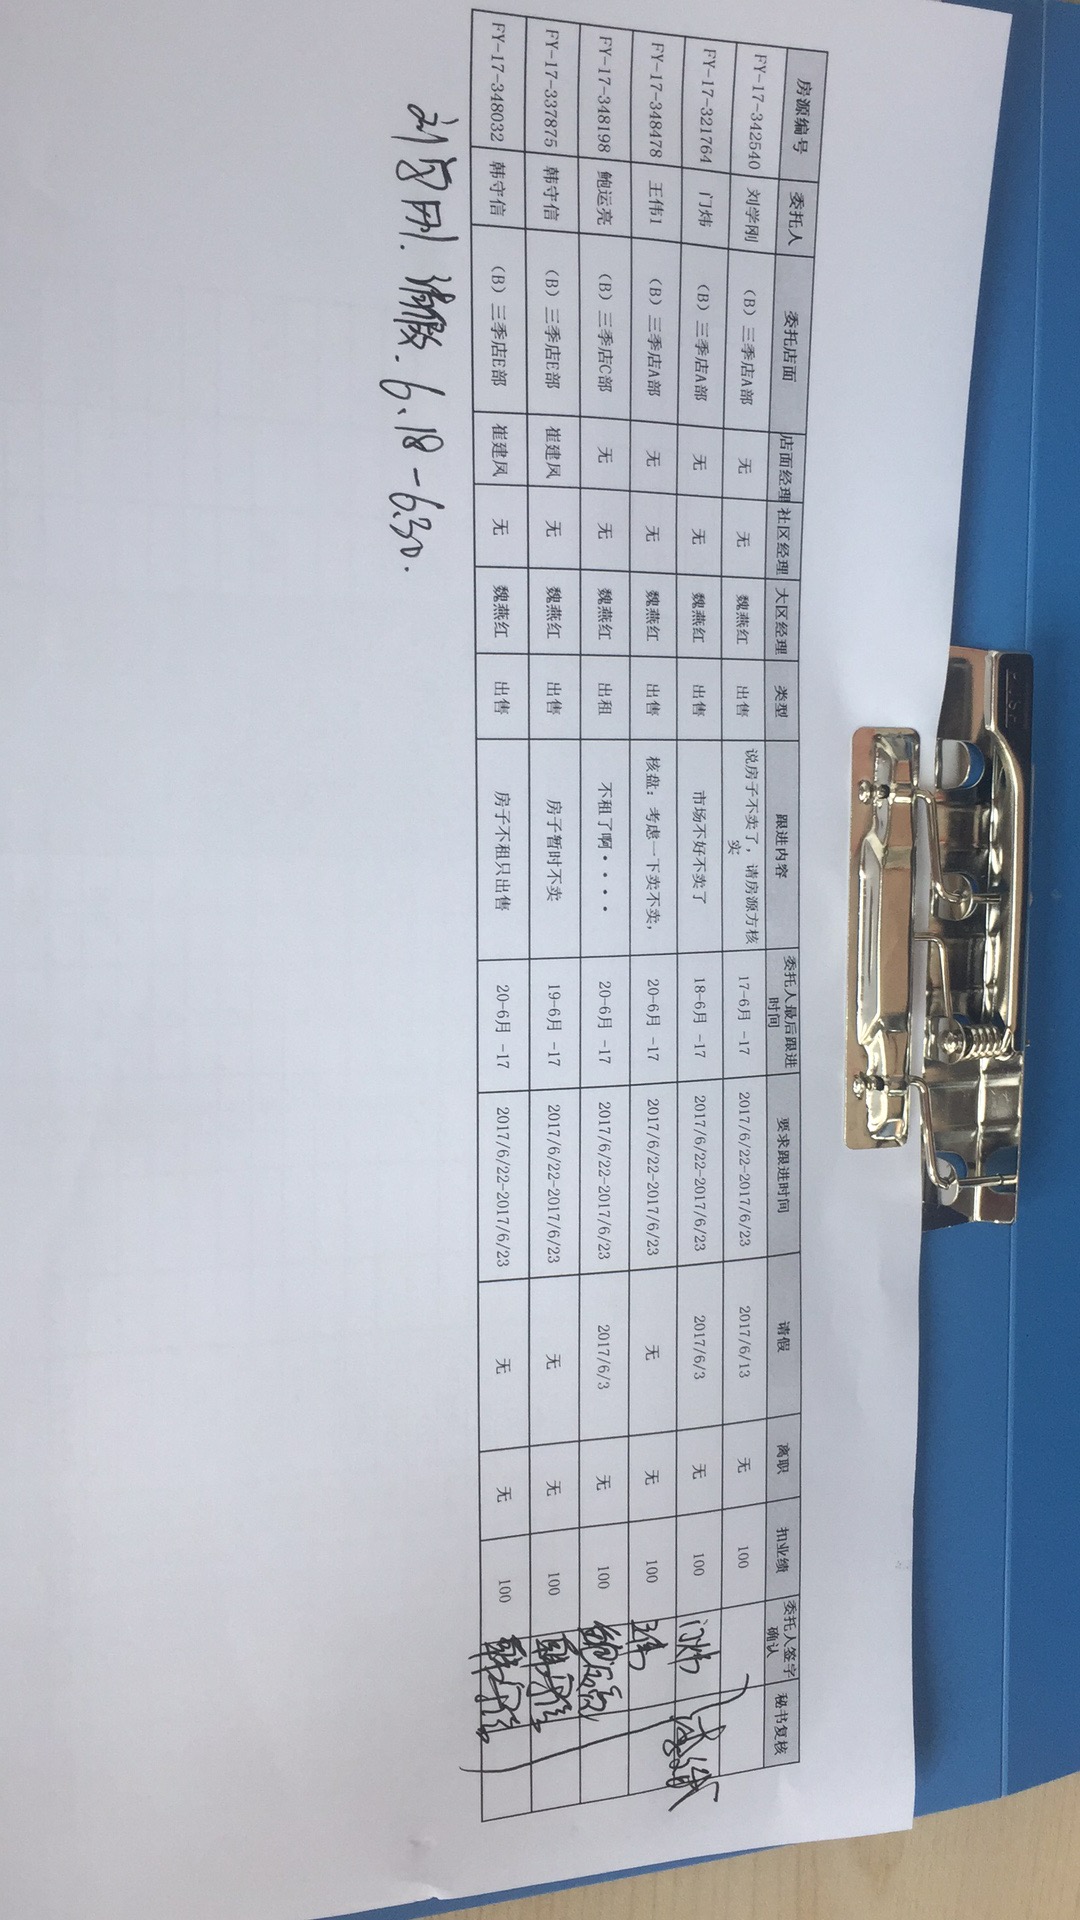 房源编号 委托人 委托店面 店面经理 社区经理 大区经理 类型 跟进内容 委托人最后跟进时间 要求跟进时间 请假 离职 扣业绩 委托人签字确认 秘书复核
FY-17-342540 刘学刚 (B) 三季店A部 无 无 魏燕红 出售 说房子不卖了，请房源方核实 17-6月 -17 2017/6/22-2017/6/23 2017/6/13 无 100
FY-17-321764 门炜 (B) 三季店A部 无 无 魏燕红 出售 市场不好不卖了 18-6月 -17 2017/6/22-2017/6/23 2017/6/3 无 100 门炜
FY-17-348478 王伟1 (B) 三季店A部 无 无 魏燕红 出售 核盘：考虑一下卖不卖， 20-6月 -17 2017/6/22-2017/6/23 无 无 100 王伟
FY-17-348198 鲍运亮 (B) 三季店C部 无 无 魏燕红 出租 不租了啊・・・・ 20-6月 -17 2017/6/22-2017/6/23 2017/6/3 无 100 鲍运亮
FY-17-337875 韩守信 (B) 三季店E部 崔建凤 无 魏燕红 出售 房子暂时不卖 19-6月 -17 2017/6/22-2017/6/23 无 无 100 韩守信
FY-17-348032 韩守信 (B) 三季店E部 崔建凤 无 魏燕红 出售 房子不租只出售 20-6月 -17 2017/6/22-2017/6/23 无 无 100 韩守信
刘学刚. 请假. 6.18-6.30.